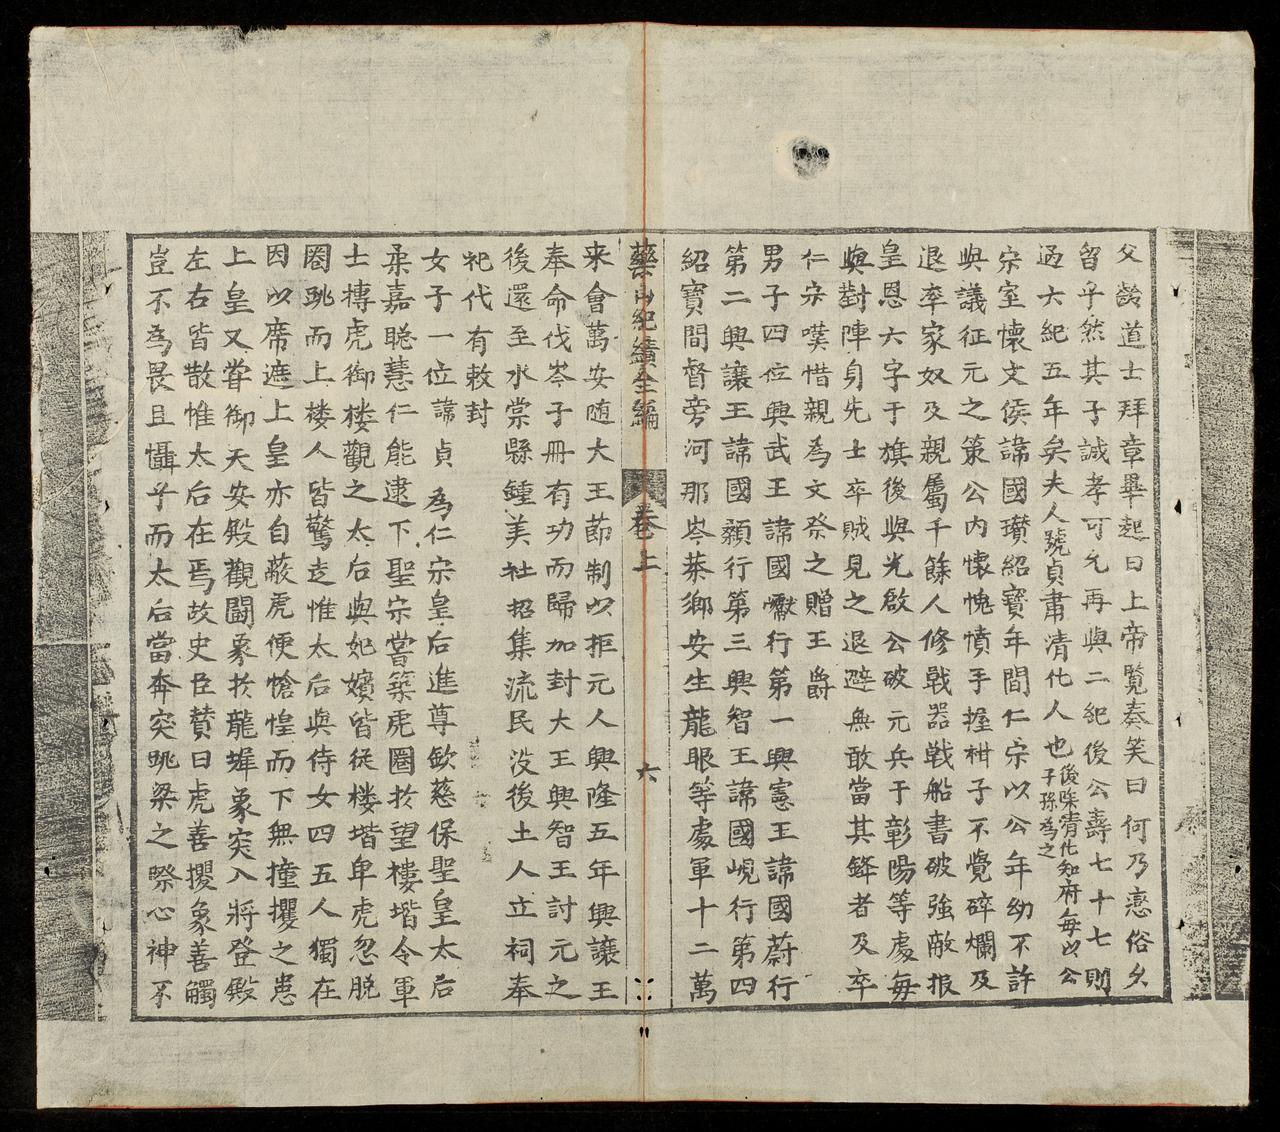 父齡道士拜章畢起曰上帝覽奏笑曰何乃戀俗久
留乎然其子誠孝可允再與二紀後公壽七十七則
過六紀五年矣夫人號貞肅清化人也後陞清化知府每以公子孫為之
宋室懷文侯諱國瓚紹寶年間仁宗以公年幼不許
與議征元之策公內懷愧憤手握柑子不覺碎爛及
退率家奴及親屬千餘人修戰器戰船書破強敵报
皇恩六字于旗後與光啟公破元兵于彰陽等處每
與對陣身先士卒賊見之退避無敢當其鋒者及卒
仁宗嘆惜親為文祭之贈王爵
男子四位興武王諱國巘行第一興憲王諱國蔚行
第二興讓王諱國顙行第三興智王諱國峴行第四
紹寶間督旁河那岑茶鄉安生龍眼等處軍十二萬
藥山紀績全編 卷上 六
来會萬安随大王節制以拒元人興隆五年興讓王
奉命伐岑子冊有功而歸加封大王興智王討元之
後還至水棠縣鍾美社招集流民没後土人立祠奉
祀代有敕封
女子一位諱貞為仁宗皇后進尊欽慈保聖皇太后
柔嘉聪慧仁能逮下聖宗嘗築虎圈扵望樓堦令軍
士摶虎御楼觀之太后與妃嬪皆從楼堦卑虎忽脱
圈跳而上楼人皆驚走惟太后與侍女四五人獨在
因以席遮上皇亦自蔽虎便愴惶而下無撞攫之患
上皇又甞御天安殿觀鬪象扵龍墀象突入將登殿
左右皆散惟太后在焉故史臣賛曰虎善攫象善觸
豈不為畏且懾乎而太后當奔突跳梁之際心神不